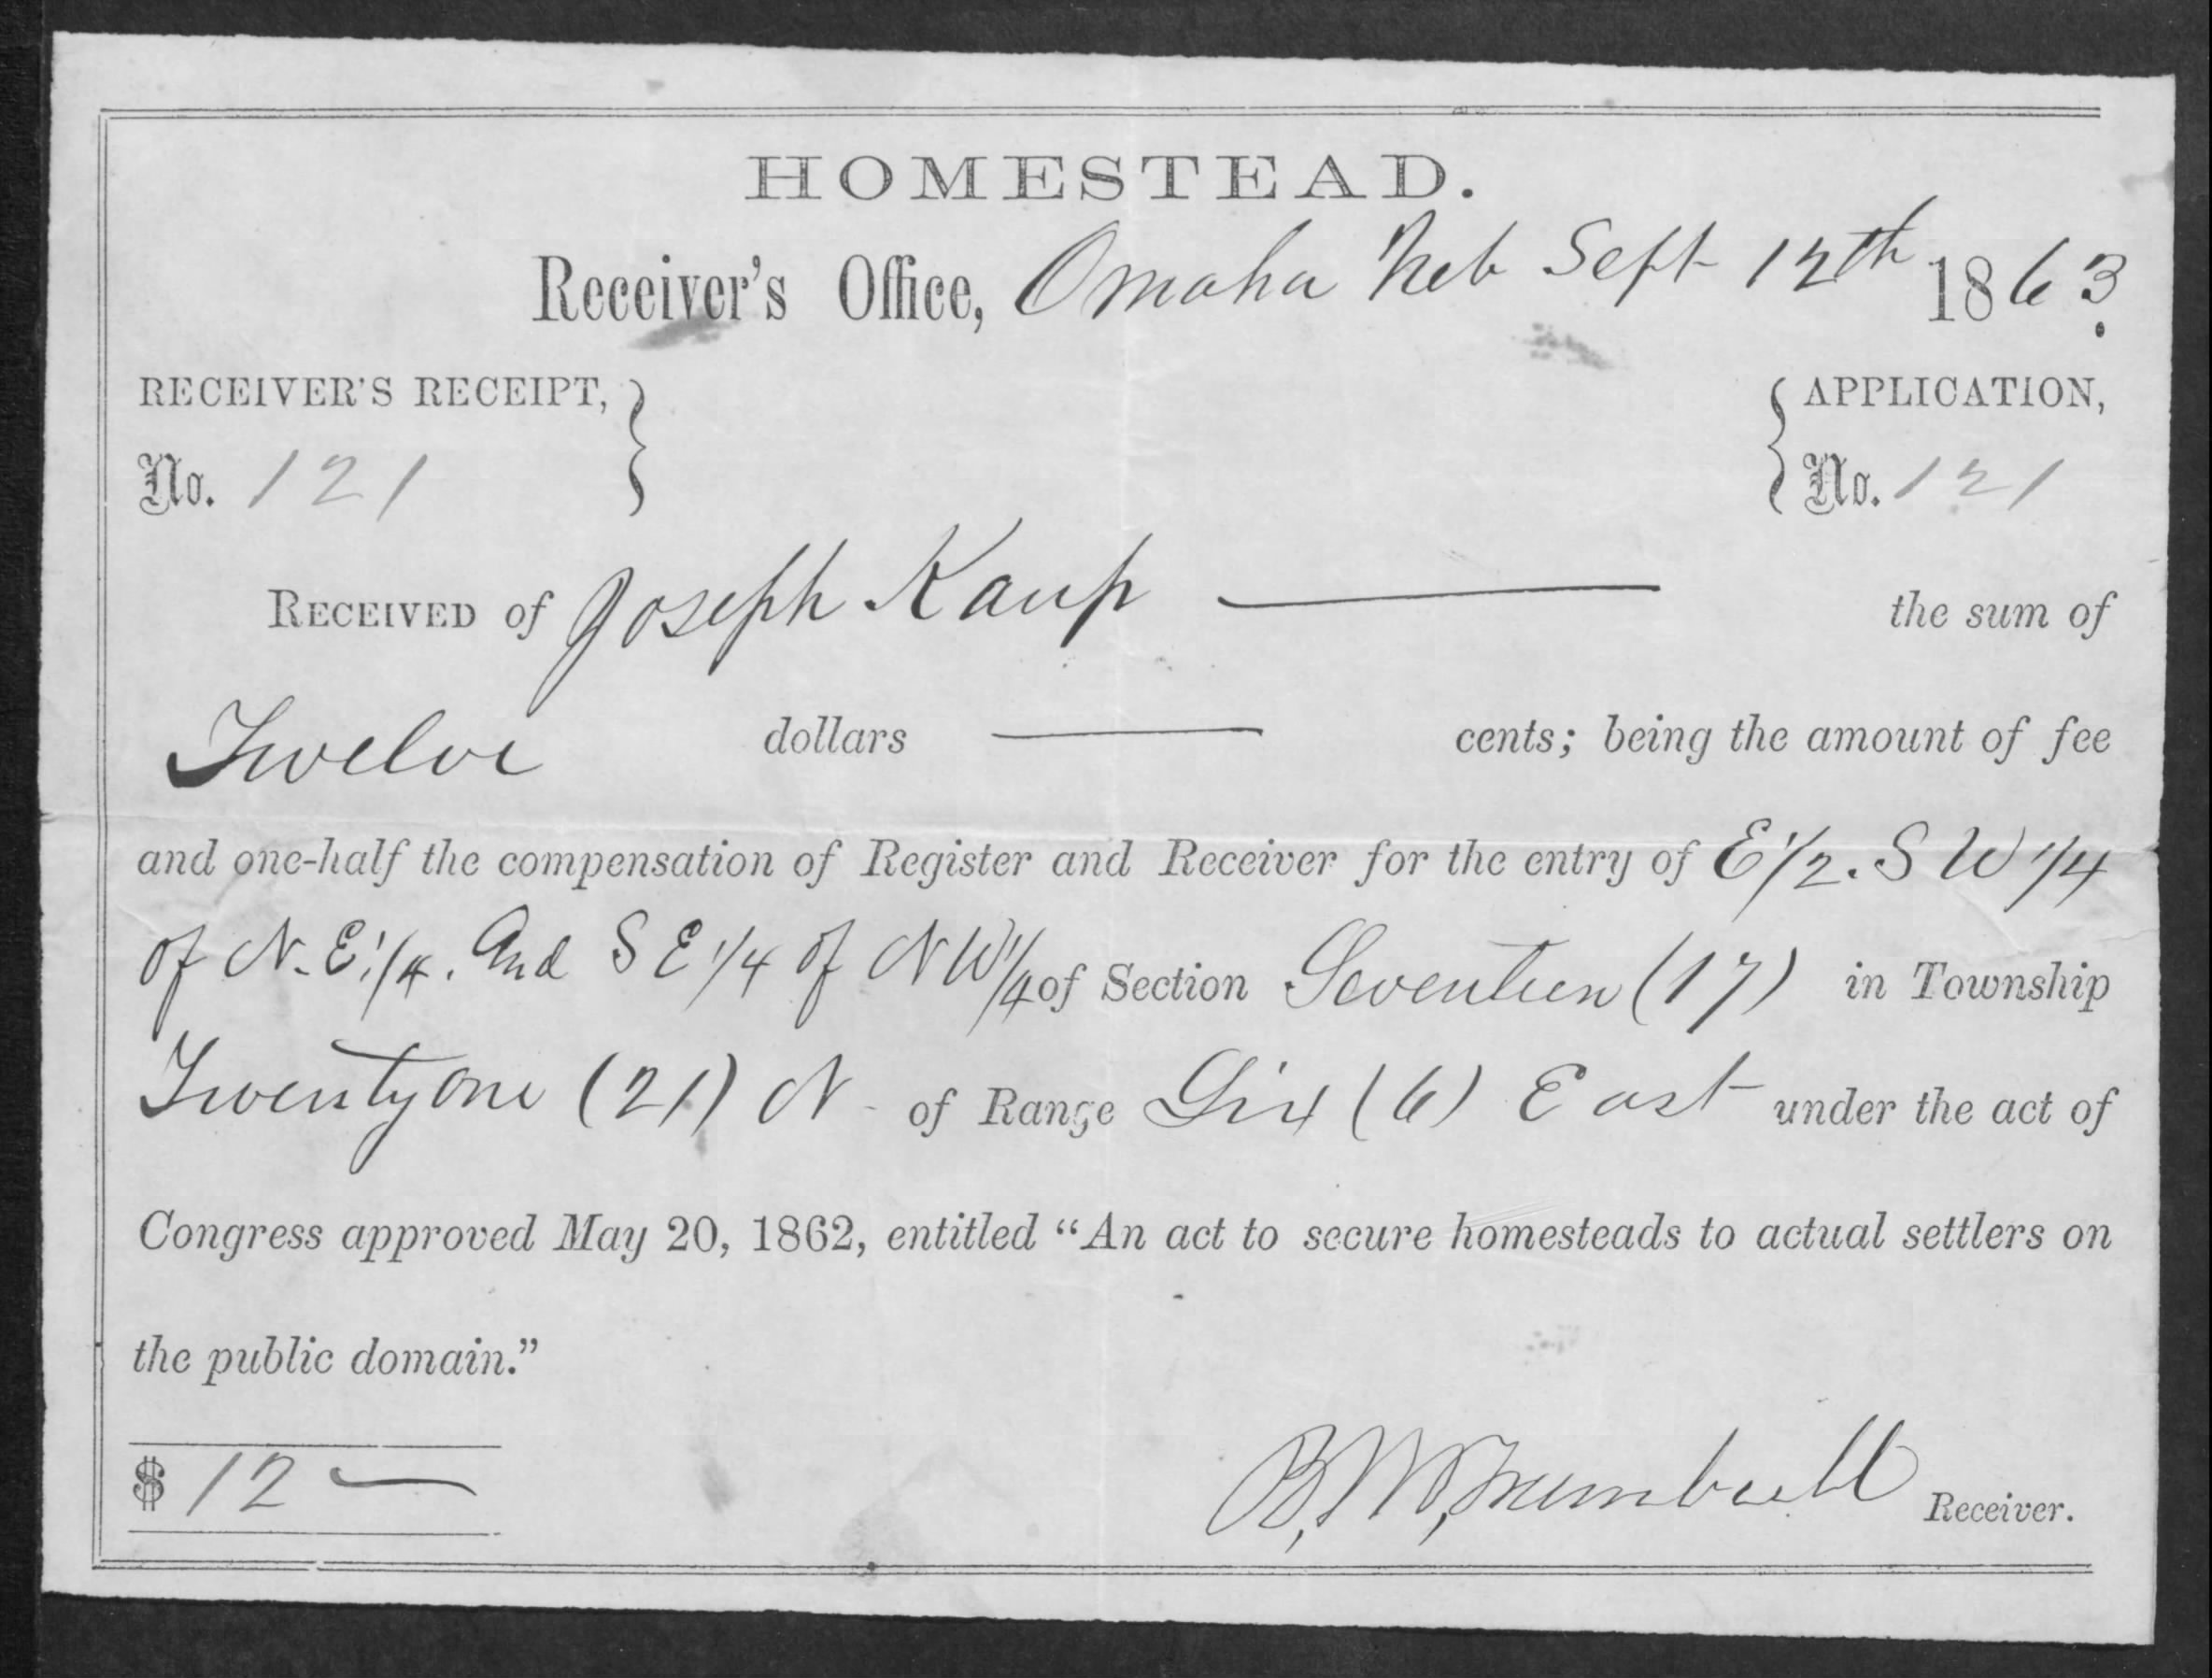 HOMESTEAD.
Receiver's Office, Omaha Neb Sept 12th 1863.
RECEIVER'S RECEIPT, } { APPLICATION,
No. 121 No. 121
RECEIVED of Joseph Kaup — the sum of
Twelve dollars — cents; being the amount of fee
and one-half the compensation of Register and Receiver for the entry of E 1/2. S W 1/4
of N. E. 1/4. And S E 1/4 of N W 1/4 of Section Seventeen (17) in Township
Twenty one (21) N of Range Six (6) East under the act of
Congress approved May 20, 1862, entitled “An act to secure homesteads to actual settlers on
the public domain.”
$ 12 —
B, W, Trumbull Receiver.